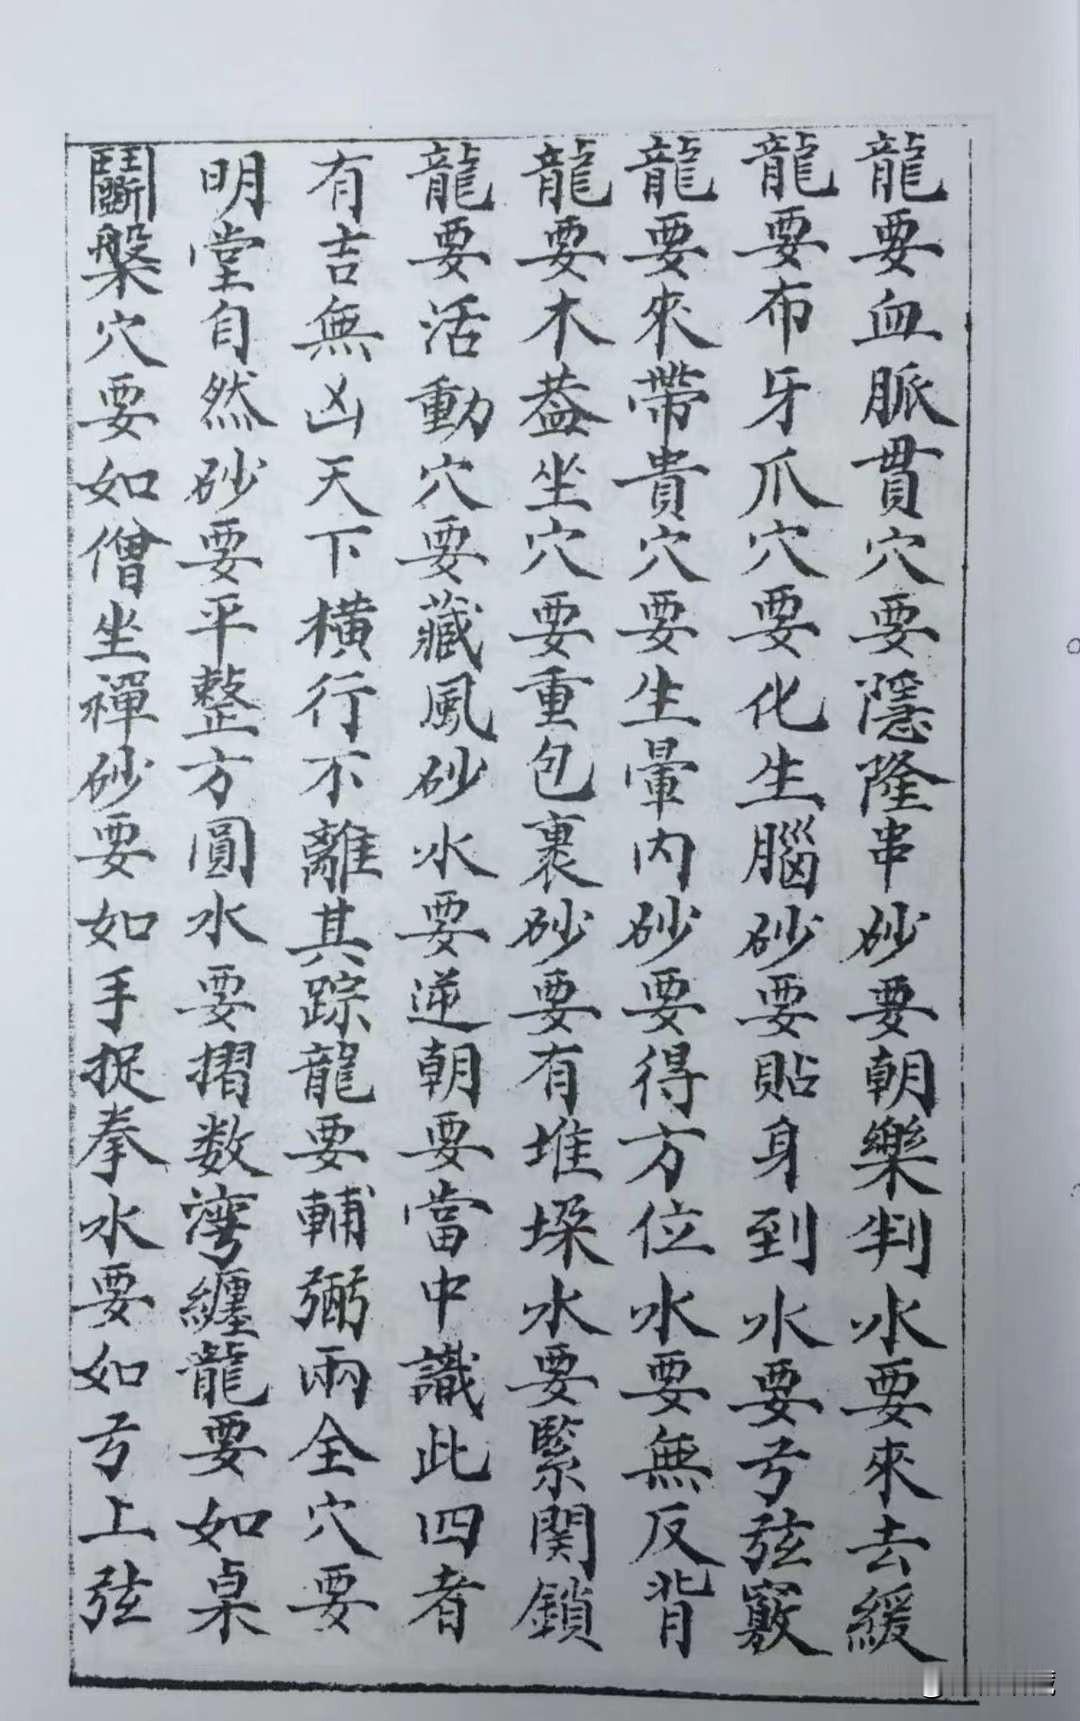 龍要血脈貫穴要隱隆串砂要朝樂判水要來去緩
龍要布牙爪穴要化生腦砂要貼身到水要弓弦竅
龍要來帶貴穴要生暈內砂要得方位水要無反背
龍要木蓋坐穴要重包裹砂要有堆垛水要緊関鎖
龍要活動穴要藏風砂水要逆朝要當中識此四者
有吉無凶天下橫行不離其踪龍要輔弼兩全穴要
明堂自然砂要平整方圓水要摺数灣纏龍要如桌
鬭槃穴要如僧坐禪砂要如手捉拳水要如弓上弦